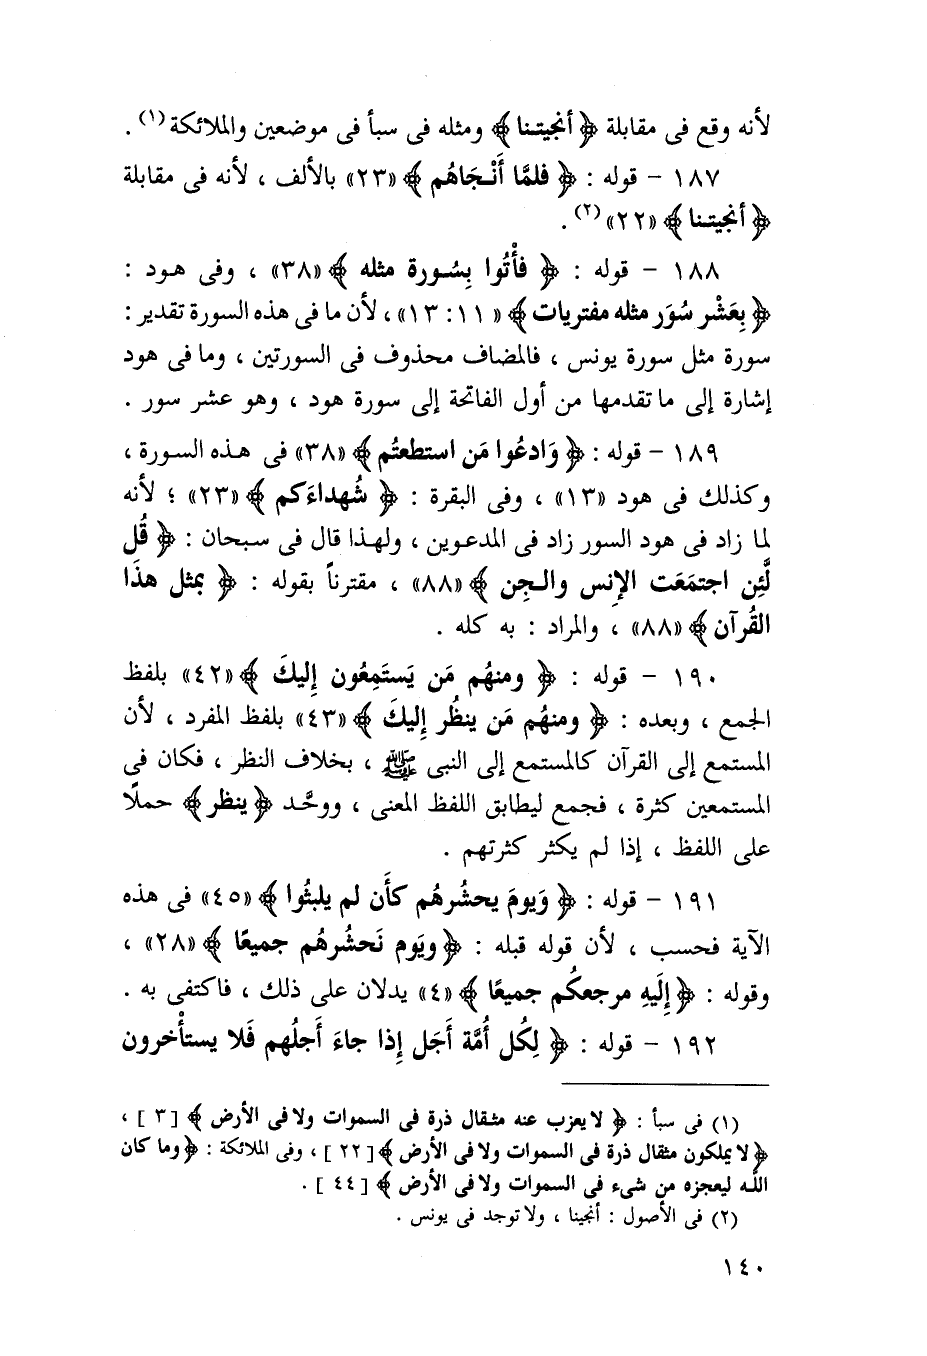 لأنه وقع فى مقابلة ﴿ أنجيتـنا ﴾ ومثله فى سبأ فى موضعين والملائكة (١) .
١٨٧ – قوله : ﴿ فلمَّا أَنْـجَاهُم ﴾ «٢٣» بالألف ، لأنه فى مقابلة
﴿ أنجيتـنا ﴾ «٢٢» (٢) .
١٨٨ – قوله : ﴿ فأْتُوا بِسُـورة مثله ﴾ «٣٨» ، وفى هـود :
﴿ بِعَشْر سُوَر مثله مفتريات ﴾ « ١١ : ١٣» ، لأن ما فى هذه السورة تقدير :
سورة مثل سورة يونس ، فالمضاف محذوف فى السورتين ، وما فى هود
إشارة إلى ما تقدمها من أول الفاتحة إلى سورة هود ، وهو عشر سور .
١٨٩ – قوله : ﴿ وَادعُوا مَن استطعتُم ﴾ «٣٨» فى هـذه السـورة ،
وكذلك فى هود «١٣» ، وفى البقرة : ﴿ شُهداءَكم ﴾ «٢٣» ؛ لأنه
لما زاد فى هود السور زاد فى المدعوين ، ولهـذا قال فى سبحان : ﴿ قُل
لَّئِن اجتمَعَت الإِنس والـجِن ﴾ «٨٨» ، مقترناً بقوله : ﴿ بمثل هذَا
القُرآن ﴾ «٨٨» ، والمراد : به كله .
١٩٠ – قوله : ﴿ ومنهُم مَن يَستَمِعُون إِليكَ ﴾ «٤٢» بلفظ
الجمع ، وبعده : ﴿ ومنهُم مَن ينظُر إِليكَ ﴾ «٤٣» بلفظ المفرد ، لأن
المستمع إلى القرآن كالمستمع إلى النبى ﷺ ، بخلاف النظر ، فكان فى
المستمعين كثرة ، فجمع ليطابق اللفظ المعنى ، ووحَّـد ﴿ ينظر ﴾ حملًا
على اللفظ ، إذا لم يكثر كثرتهم .
١٩١ – قوله : ﴿ وَيومَ يحشُرهُم كأَن لم يلبثُوا ﴾ «٤٥» فى هذه
الآية فحسب ، لأن قوله قبله : ﴿ ويَوم نَحشُرهُم جميعًا ﴾ «٢٨» ،
وقوله : ﴿ إِلَيهِ مرجعكُم جميعًا ﴾ «٤» يدلان على ذلك ، فاكتفى به .
١٩٢ – قوله : ﴿ لِكُل أُمَّة أَجَل إِذا جاءَ أَجلُهم فَلا يستأْخرون
(١) فى سبأ : ﴿ لا يعزب عنه مثـقال ذرة فى السموات ولا فى الأرض ﴾ [ ٣ ] ،
﴿ لا يملكون مثقال ذرة فى السموات ولا فى الأرض ﴾ [ ٢٢ ] ، وفى الملائكة : ﴿ وما كان
اللّه ليعجزه من شىء فى السموات ولا فى الأرض ﴾ [ ٤٤ ] .
(٢) فى الأصول : أنجينا ، ولا توجد فى يونس .
١٤٠